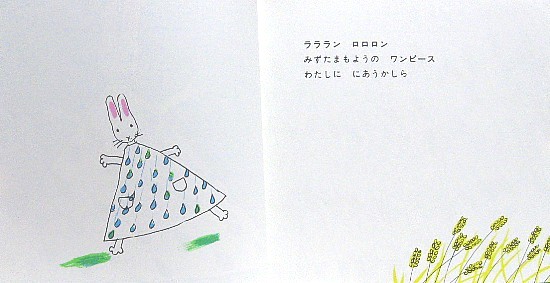 ラララン ロロロン
みずたまもようの ワンピース
わたしに にあうかしら